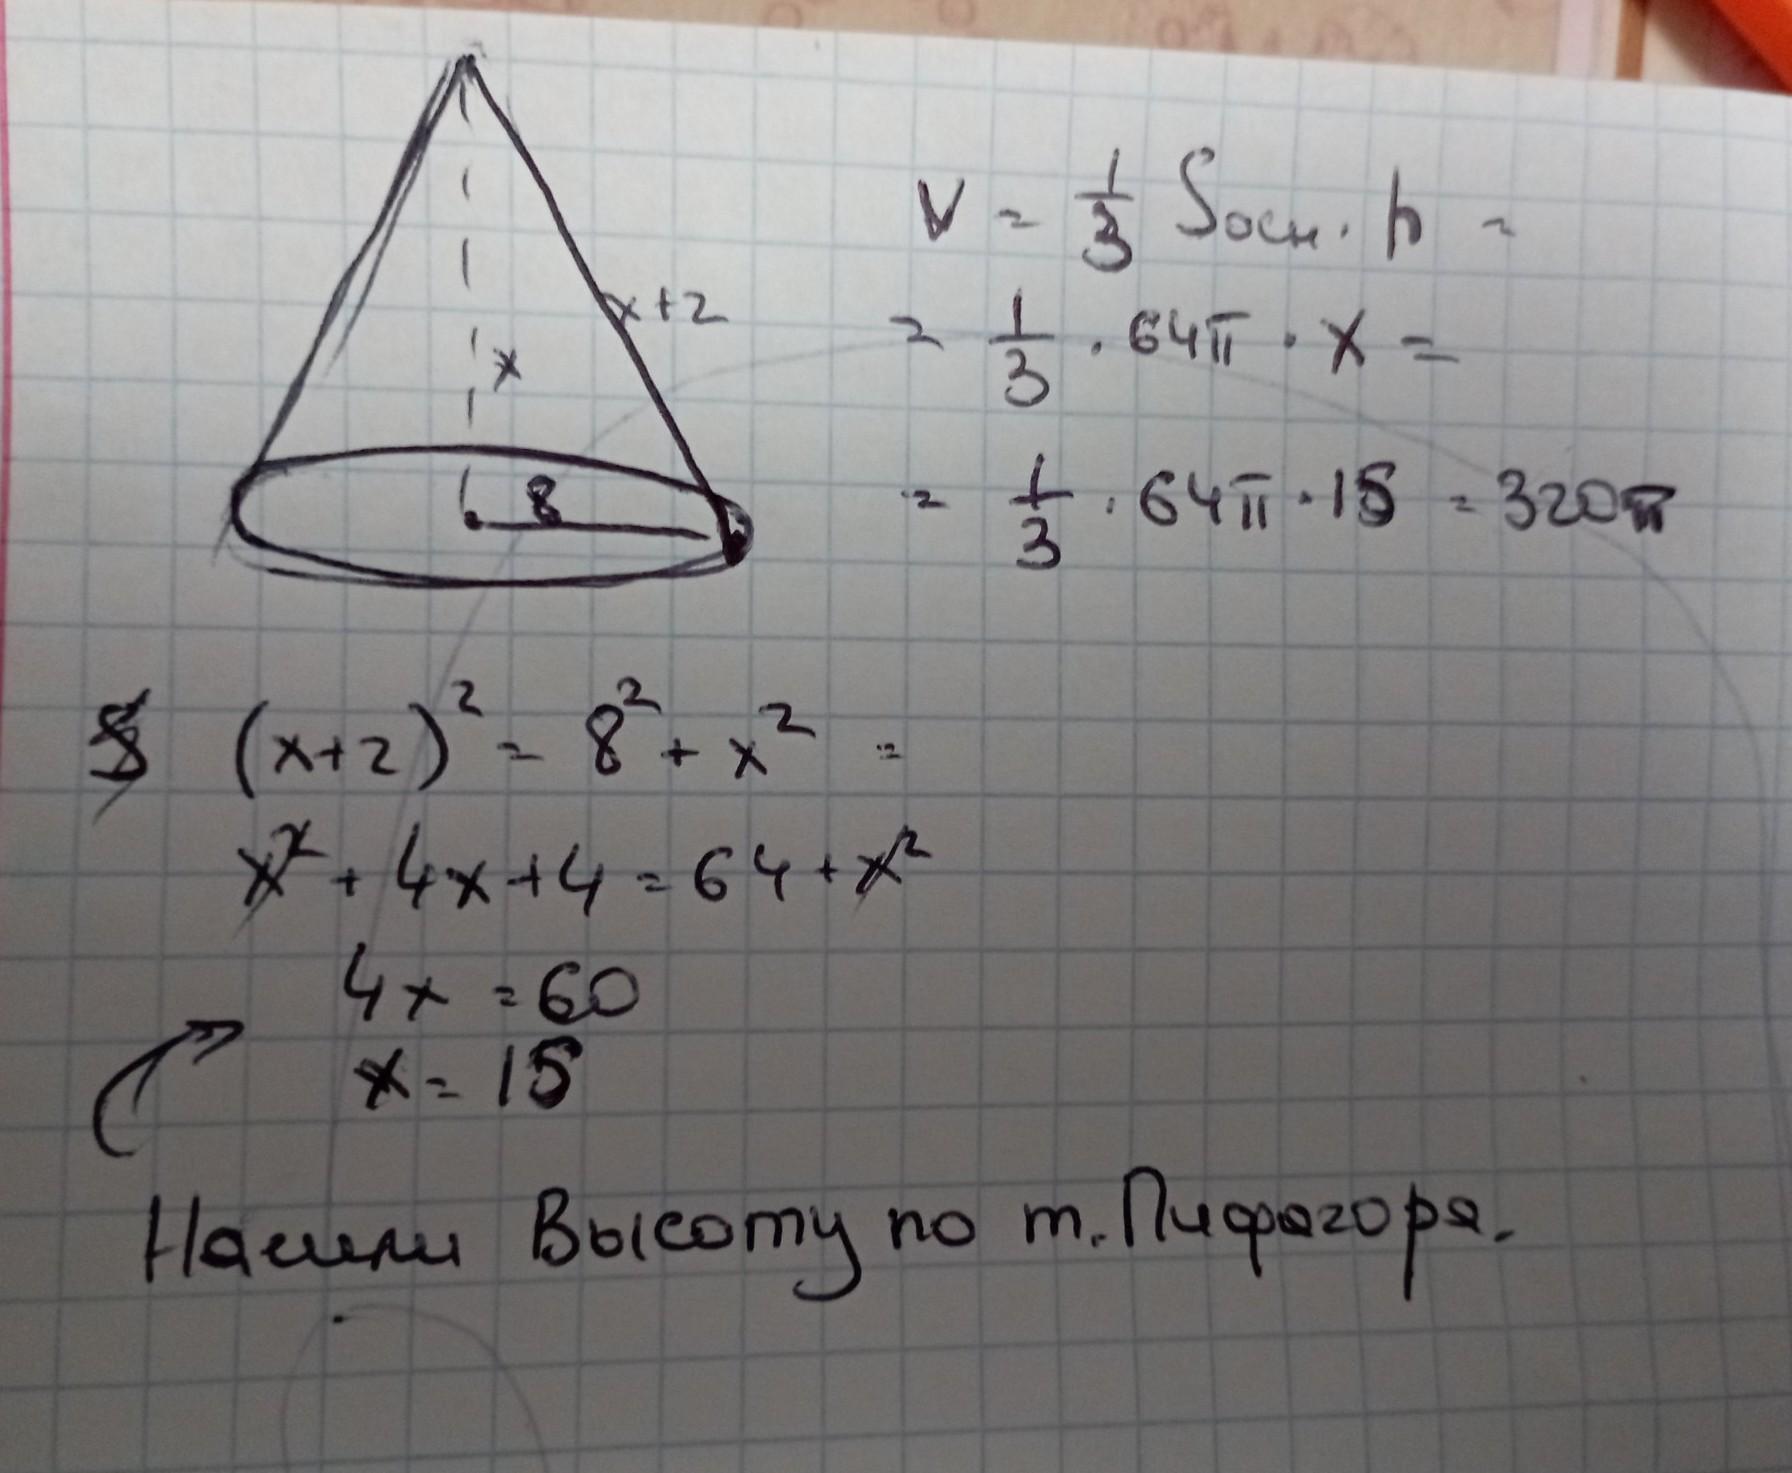 x
x+2
8
V = 1/3 Sосн. h =
= 1/3 · 64π · x =
= 1/3 · 64π · 15 = 320π
(x+2)² = 8² + x² =
x² + 4x + 4 = 64 + x²
4x = 60
x = 15
Нашли Высоту по т. Пифагора.